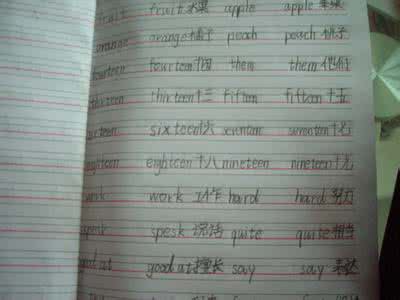 fruit fruit 水果 apple apple 苹果
orange orange 橘子 peach peach 桃子
fourteen fourteen 十四 them them 他们
thirteen thirteen 十三 fifteen fifteen 十五
sixteen sixteen 十六 seventeen seventeen 十七
eighteen eighteen 十八 nineteen nineteen 十九
work work 工作 hard hard 努力
spesk spesk 说话 quite quite 相当
good at good at 擅长 say say 表达